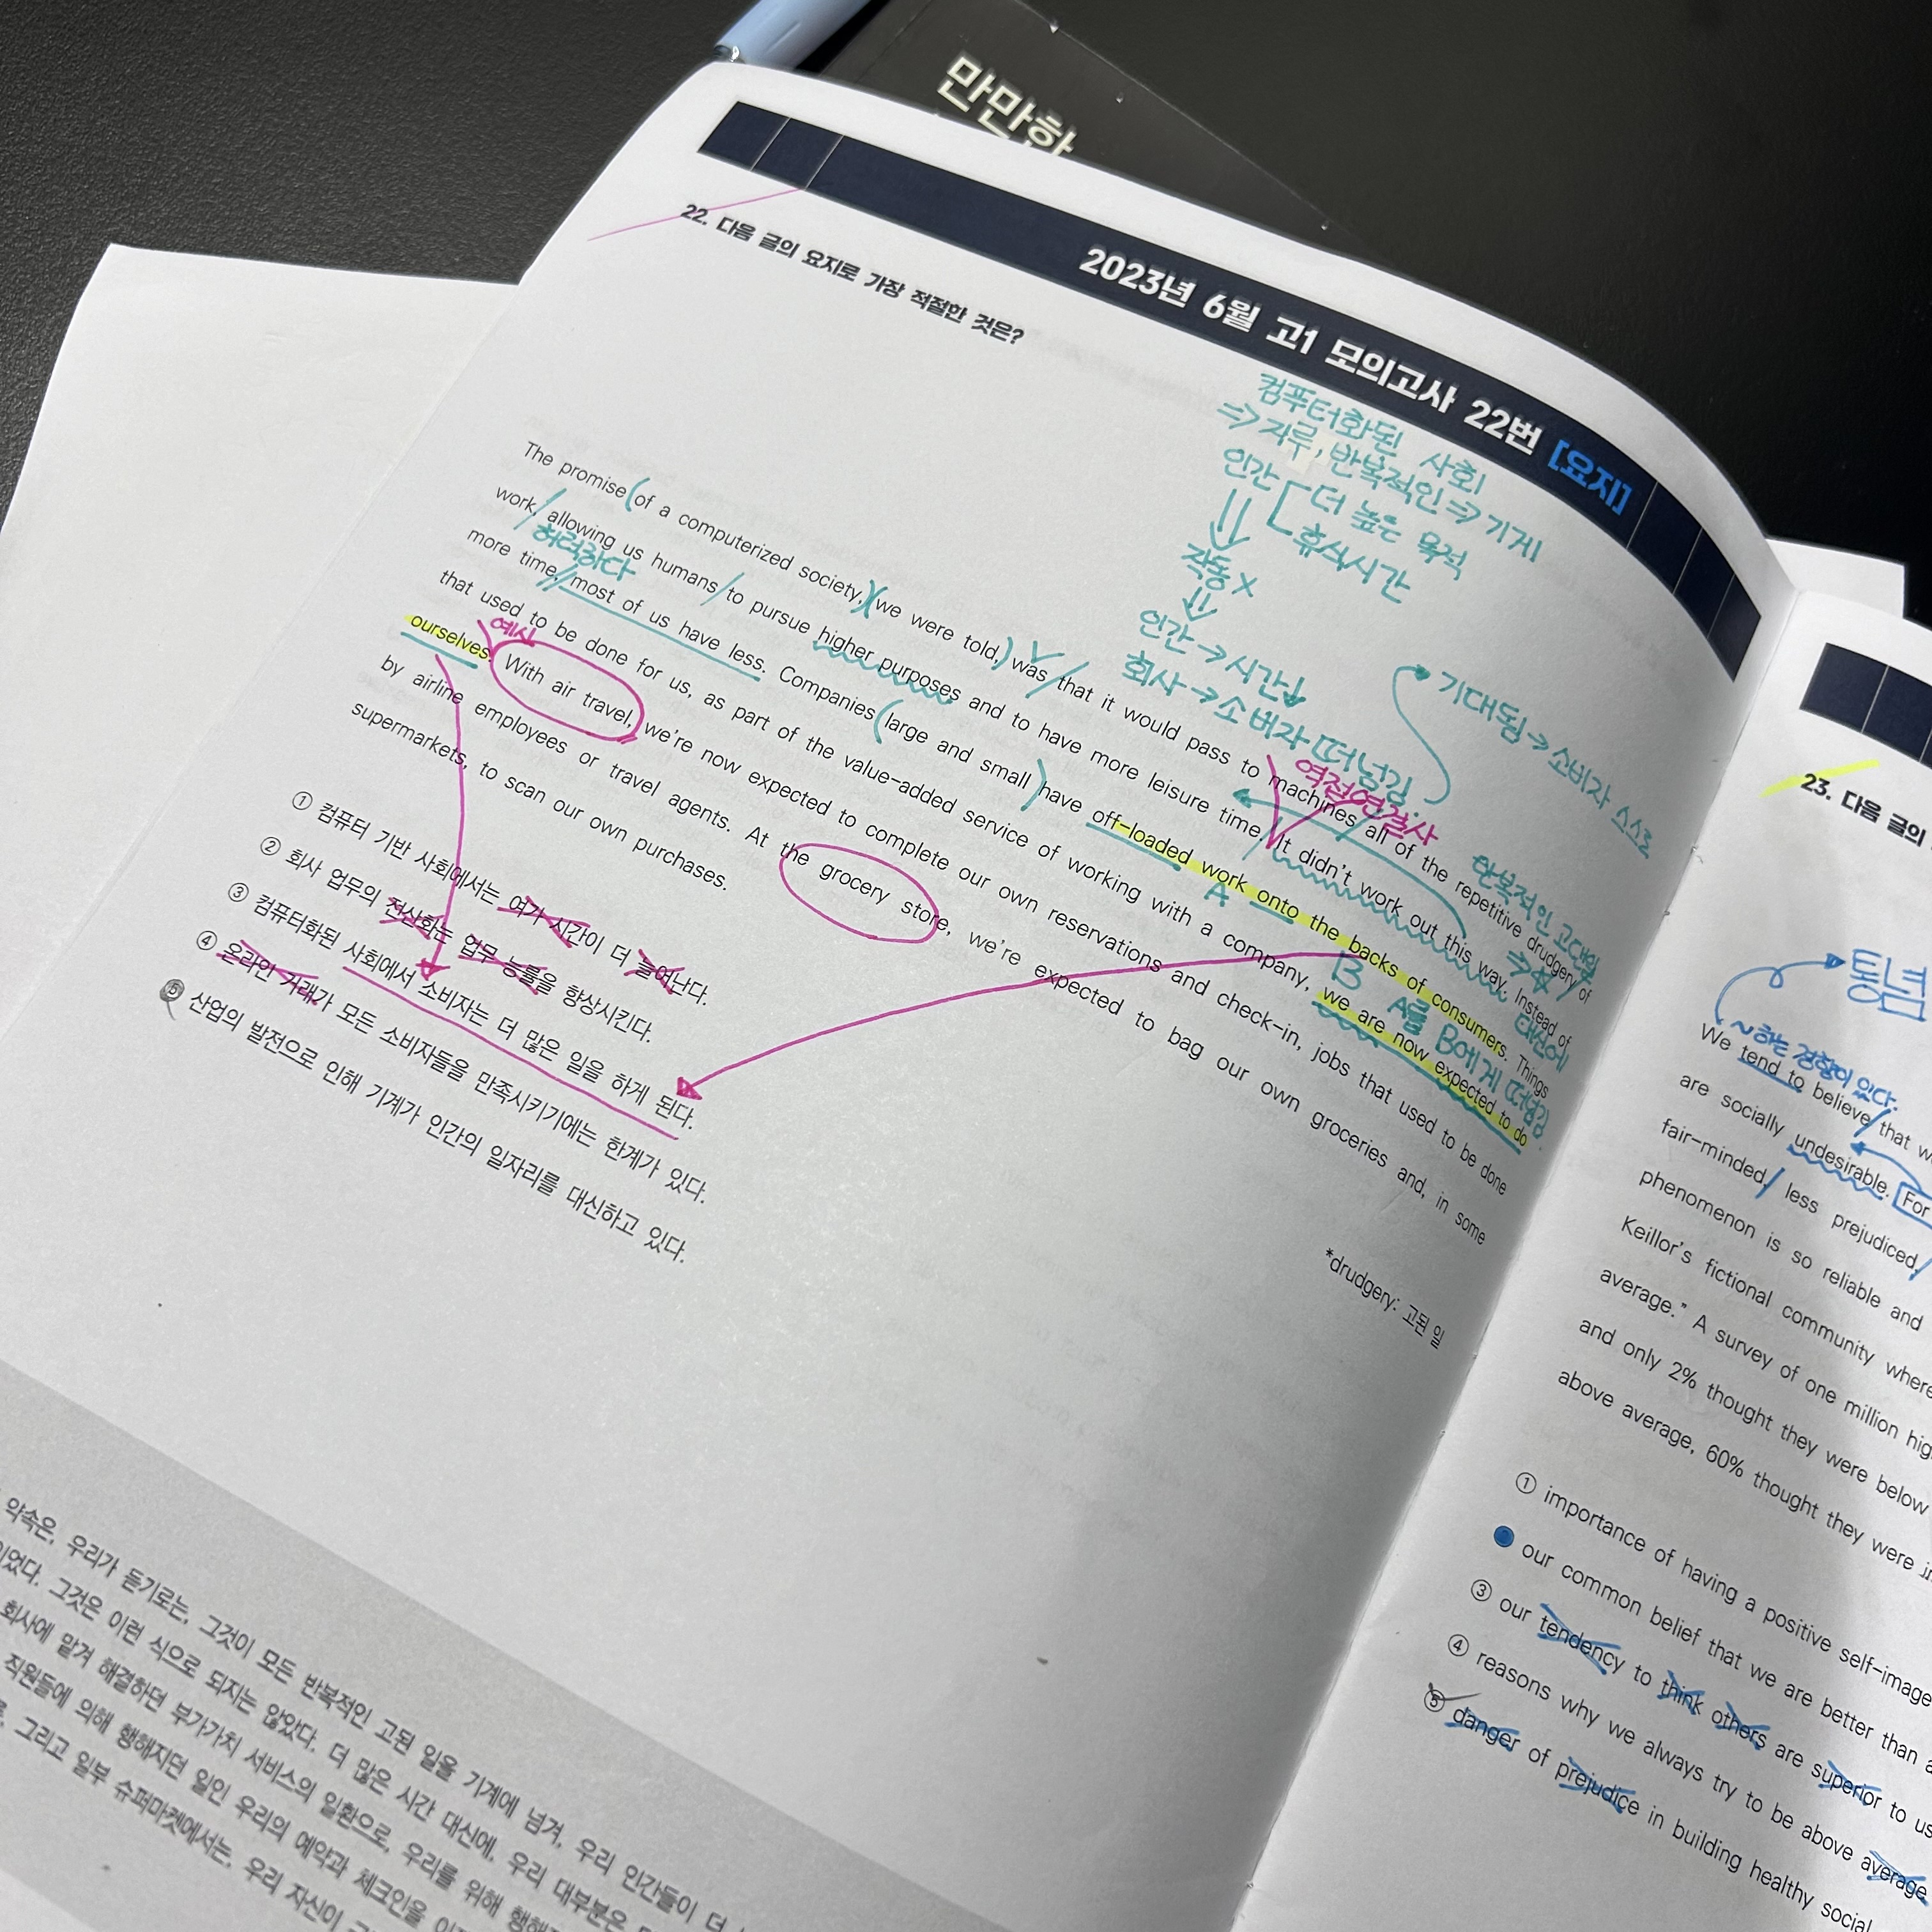 만만한
2023년 6월 고1 모의고사 22번 [요지]
22. 다음 글의 요지로 가장 적절한 것은?
컴퓨터화된 사회
⇒ 지루, 반복적인 ⇒ 기계
인간 더 높은 목적
휴식시간
작동 X
인간 → 시간↓
회사 → 소비자 떠넘김
기대됨 → 소비자 스스로
The promise of a computerized society, we were told, was that it would pass to machines all of the repetitive drudgery of
work, allowing us humans to pursue higher purposes and to have more leisure time. It didn't work out this way. Instead of
more time, most of us have less. Companies large and small have off-loaded work onto the backs of consumers. Things
that used to be done for us, as part of the value-added service of working with a company, we are now expected to do
ourselves. With air travel, we're now expected to complete our own reservations and check-in, jobs that used to be done
by airline employees or travel agents. At the grocery store, we're expected to bag our own groceries and, in some
supermarkets, to scan our own purchases.
허락하다
예시
역접연결사
반복적인 고된일
대신에
A
B
A를 B에게 떠넘김
*drudgery: 고된 일
① 컴퓨터 기반 사회에서는 여가 시간이 더 늘어난다.
② 회사 업무의 전산화는 업무 능률을 향상시킨다.
③ 컴퓨터화된 사회에서 소비자는 더 많은 일을 하게 된다.
④ 온라인 거래가 모든 소비자들을 만족시키기에는 한계가 있다.
⑤ 산업의 발전으로 인해 기계가 인간의 일자리를 대신하고 있다.
약속은, 우리가 듣기로는, 그것이 모든 반복적인 고된 일을 기계에 넘겨, 우리 인간들이 더
이었다. 그것은 이런 식으로 되지는 않았다. 더 많은 시간 대신에, 우리 대부분은
회사에 맡겨 해결하던 부가가치 서비스의 일환으로, 우리를 위해
직원들에 의해 행해지던 일인 우리의 예약과 체크인을
그리고 일부 슈퍼마켓에서는, 우리 자신이
23. 다음 글의
통념
~하는 경향이 있다.
We tend to believe that
are socially undesirable. For
fair-minded, less prejudiced,
phenomenon is so reliable and
Keillor's fictional community where
average." A survey of one million
and only 2% thought they were below
above average, 60% thought they were
① importance of having a positive self-image
② our common belief that we are better than
③ our tendency to think others are superior to us
④ reasons why we always try to be above average
⑤ danger of prejudice in building healthy social